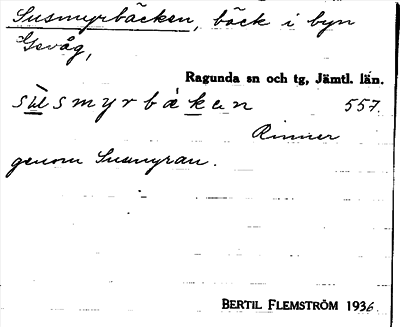 Susmyrbäcken, bäck i byn
Gevåg,
Ragunda sn och tg, Jämtl. län.
sùsmyrbäken 557.
Rinner
genom Susmyran.
BERTIL FLEMSTRÖM 1936.